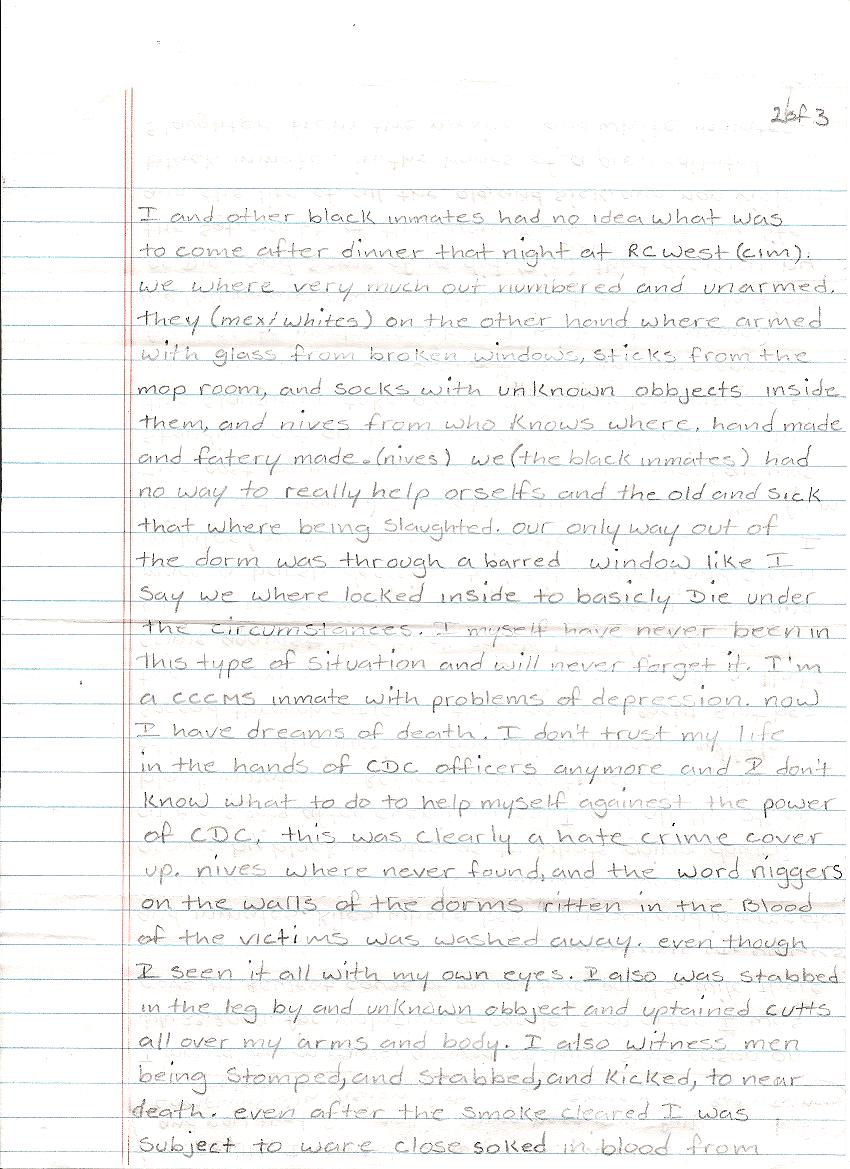 2 of 3
I and other black inmates had no idea what was
to come after dinner that night at RC West (cim).
we where very much out numbered and unarmed.
they (mex/whites) on the other hand where armed
with glass from broken windows, sticks from the
mop room, and socks with unknown obbjects inside
them, and nives from who knows where, hand made
and fatery made. (nives) we (the black inmates) had
no way to really help orselfs and the old and sick
that where being Slaughted. our only way out of
the dorm was through a barred window like I
say we where locked inside to basicly Die under
the circumstances. I myself have never been in
this type of situation and will never forget it. I'm
a CCCMS inmate with problems of depression. now
I have dreams of death. I don't trust my life
in the hands of CDC officers anymore and I don't
know what to do to help myself againest the power
of CDC, this was clearly a hate crime cover
up. nives where never found, and the word niggers
on the walls of the dorms ritten in the Blood
of the victims was washed away. even though
I seen it all with my own eyes. I also was stabbed
in the leg by and unknown obbject and uptained cutts
all over my arms and body. I also witness men
being Stomped, and Stabbed, and Kicked, to near
death. even after the smoke cleared I was
Subject to ware close soked in blood from